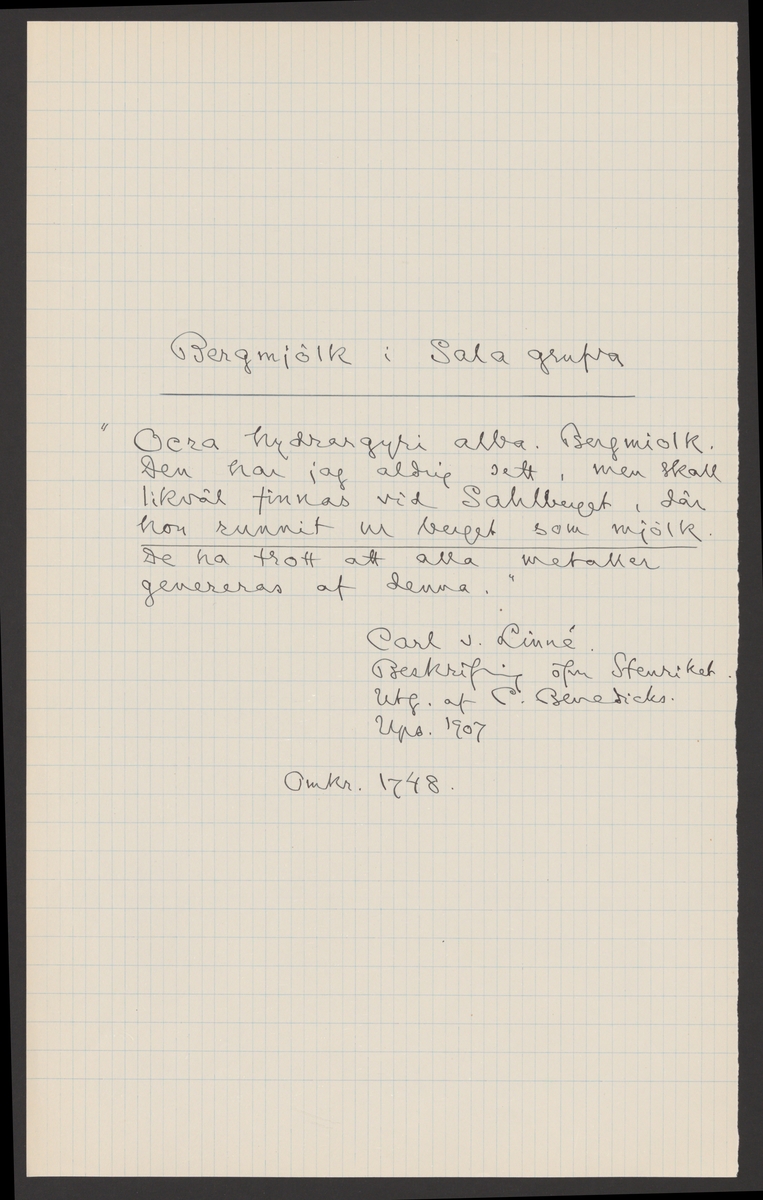 Bergmjölk i Sala grufva
" Ocra hydrargyri alba. Bergmiolk.
Den har jag aldrig sett, men skall
likväl finnas vid Sahlberget, där
hon runnit ur berget som mjölk.
De ha trott att alla metaller
genereras af denna. "
Carl v. Linné.
Beskrifning öfver Stenriket.
Utg. af C. Benedicks.
Ups. 1907
Omkr. 1748.